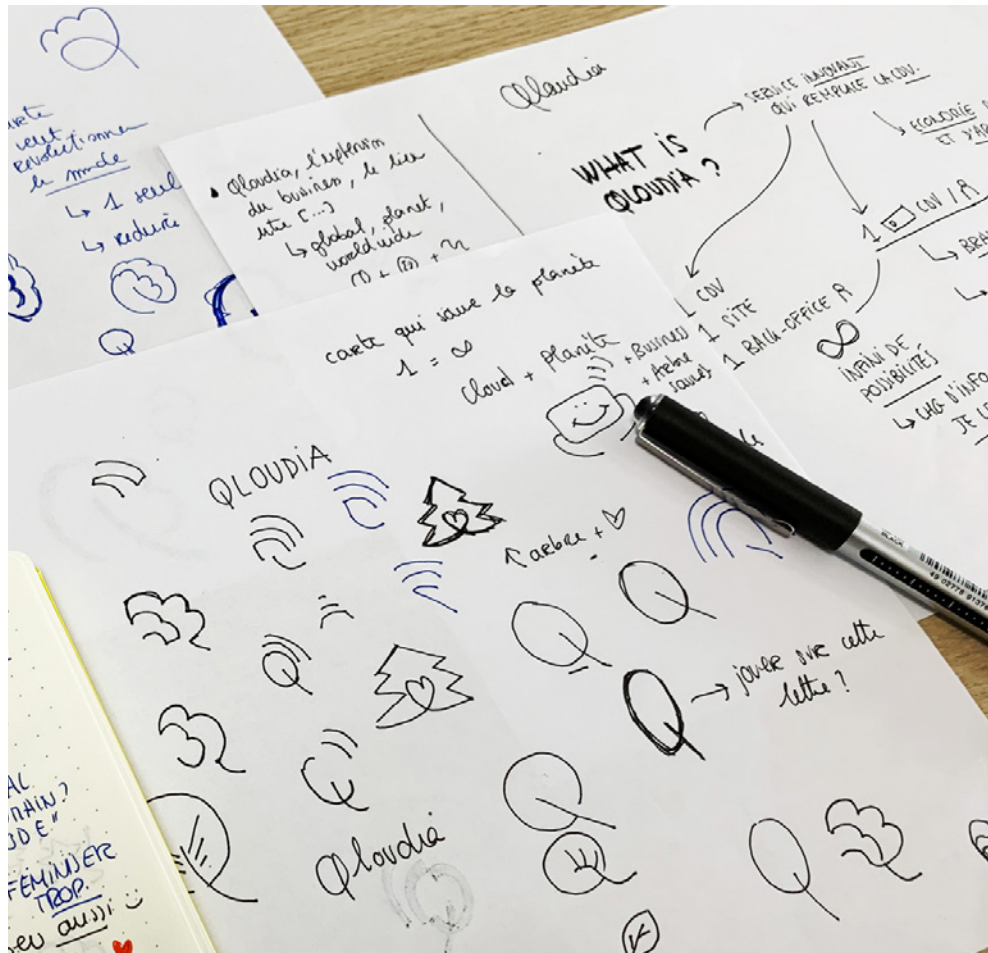 carte
veut
révolutionner
le monde
↳ 1 seul
↳ réduire
Qloudia
• Qloudia, l'expression
du business, le lieu
utile [...]
↳ global, planet,
worldwide
WHAT IS
QLOUDIA ?
→ SERVICE INNOVANT
QUI REMPLACE LA CDV.
ECONOMIE
ET D'AR
1 CDV / R
↳ BRA
CDV
1 SITE
1 BACK-OFFICE R
∞
INFINI DE
POSSIBILITÉS
↳ CHG D'INFO
JE
carte qui sauve la planète
1 = ∞
Cloud + planète
+ Business
+ Arbre
sauvés
QLOUDIA
↑ arbre + ♡
→ jouer sur cette
lettre ?
Qloudia
FEMINISER
TROP.
aussi
BLACK